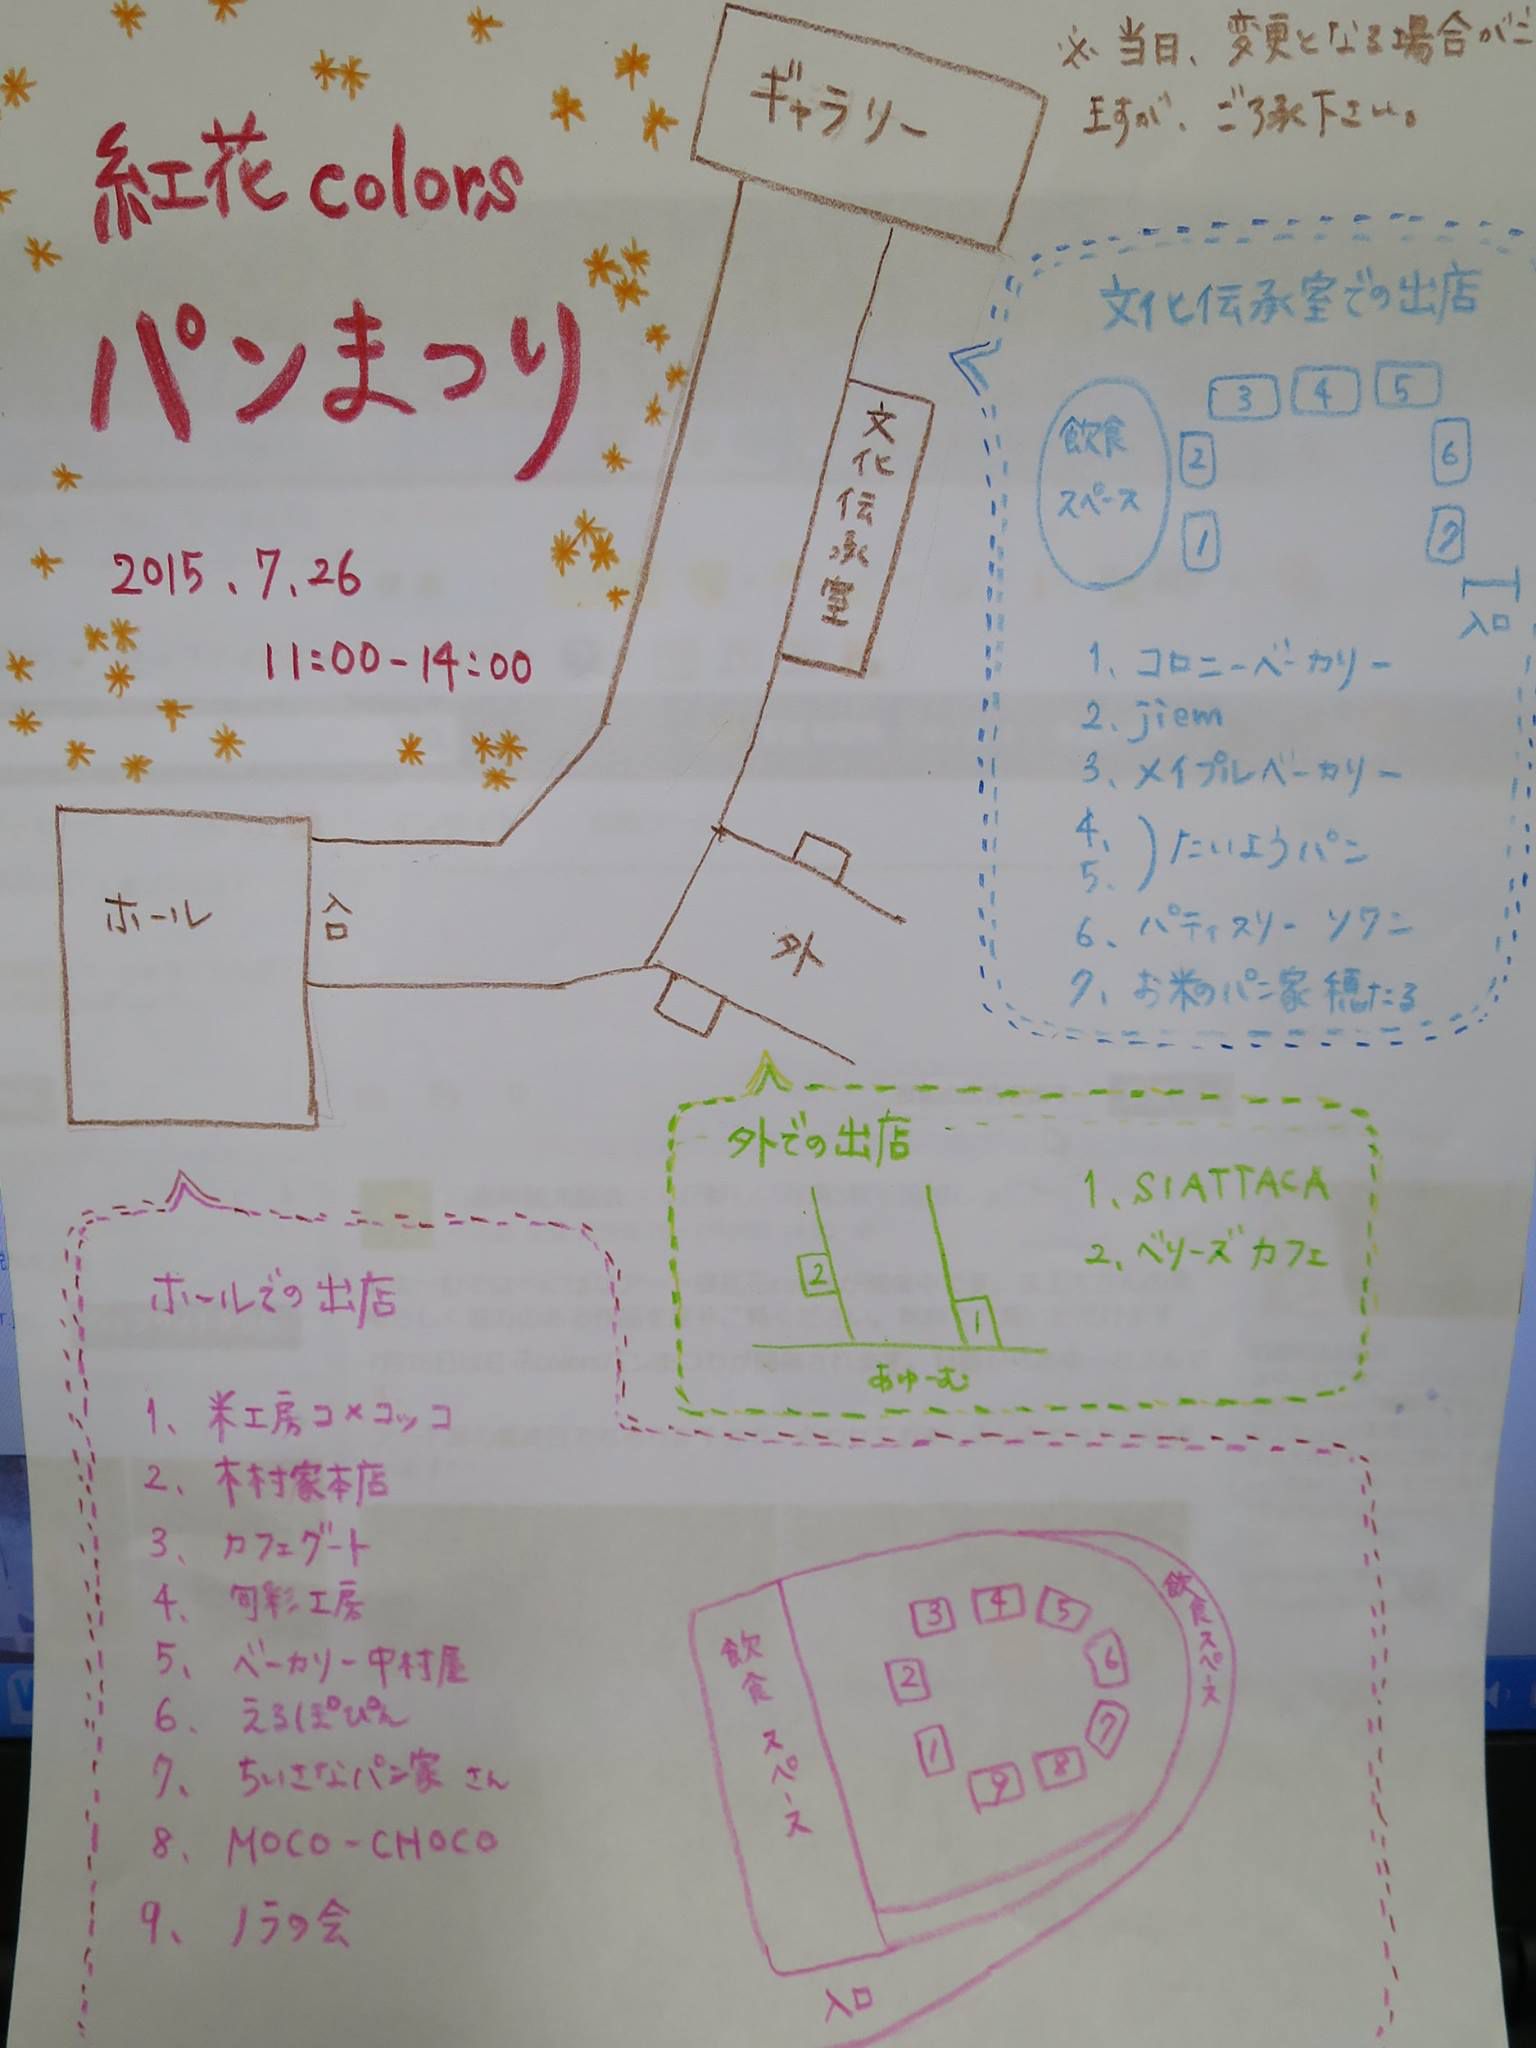 紅花colors
パンまつり
2015.7.26
11:00-14:00
※当日、変更となる場合がご
ますが、ご了承下さい。
ギャラリー
文化伝承室
ホール
入口
外
文化伝承室での出店
飲食
スペース
1
2
3
4
5
6
7
入口
1、コロニーベーカリー
2、jiem
3、メイプルベーカリー
4、
5、
)たいようパン
6、パティスリー ソワニ
7、お米のパン家 穂たる
外での出店
1、SIATTACA
2、ベリーズカフェ
2
1
あゆーむ
ホールでの出店
1、米工房コメコッコ
2、木村家本店
3、カフェグート
4、旬彩工房
5、ベーカリー中村屋
6、えるぽぴん
7、ちいさなパン家さん
8、MOCO-CHOCO
9、ノラの会
飲食スペース
飲食スペース
3
4
5
2
6
1
7
9
8
入口